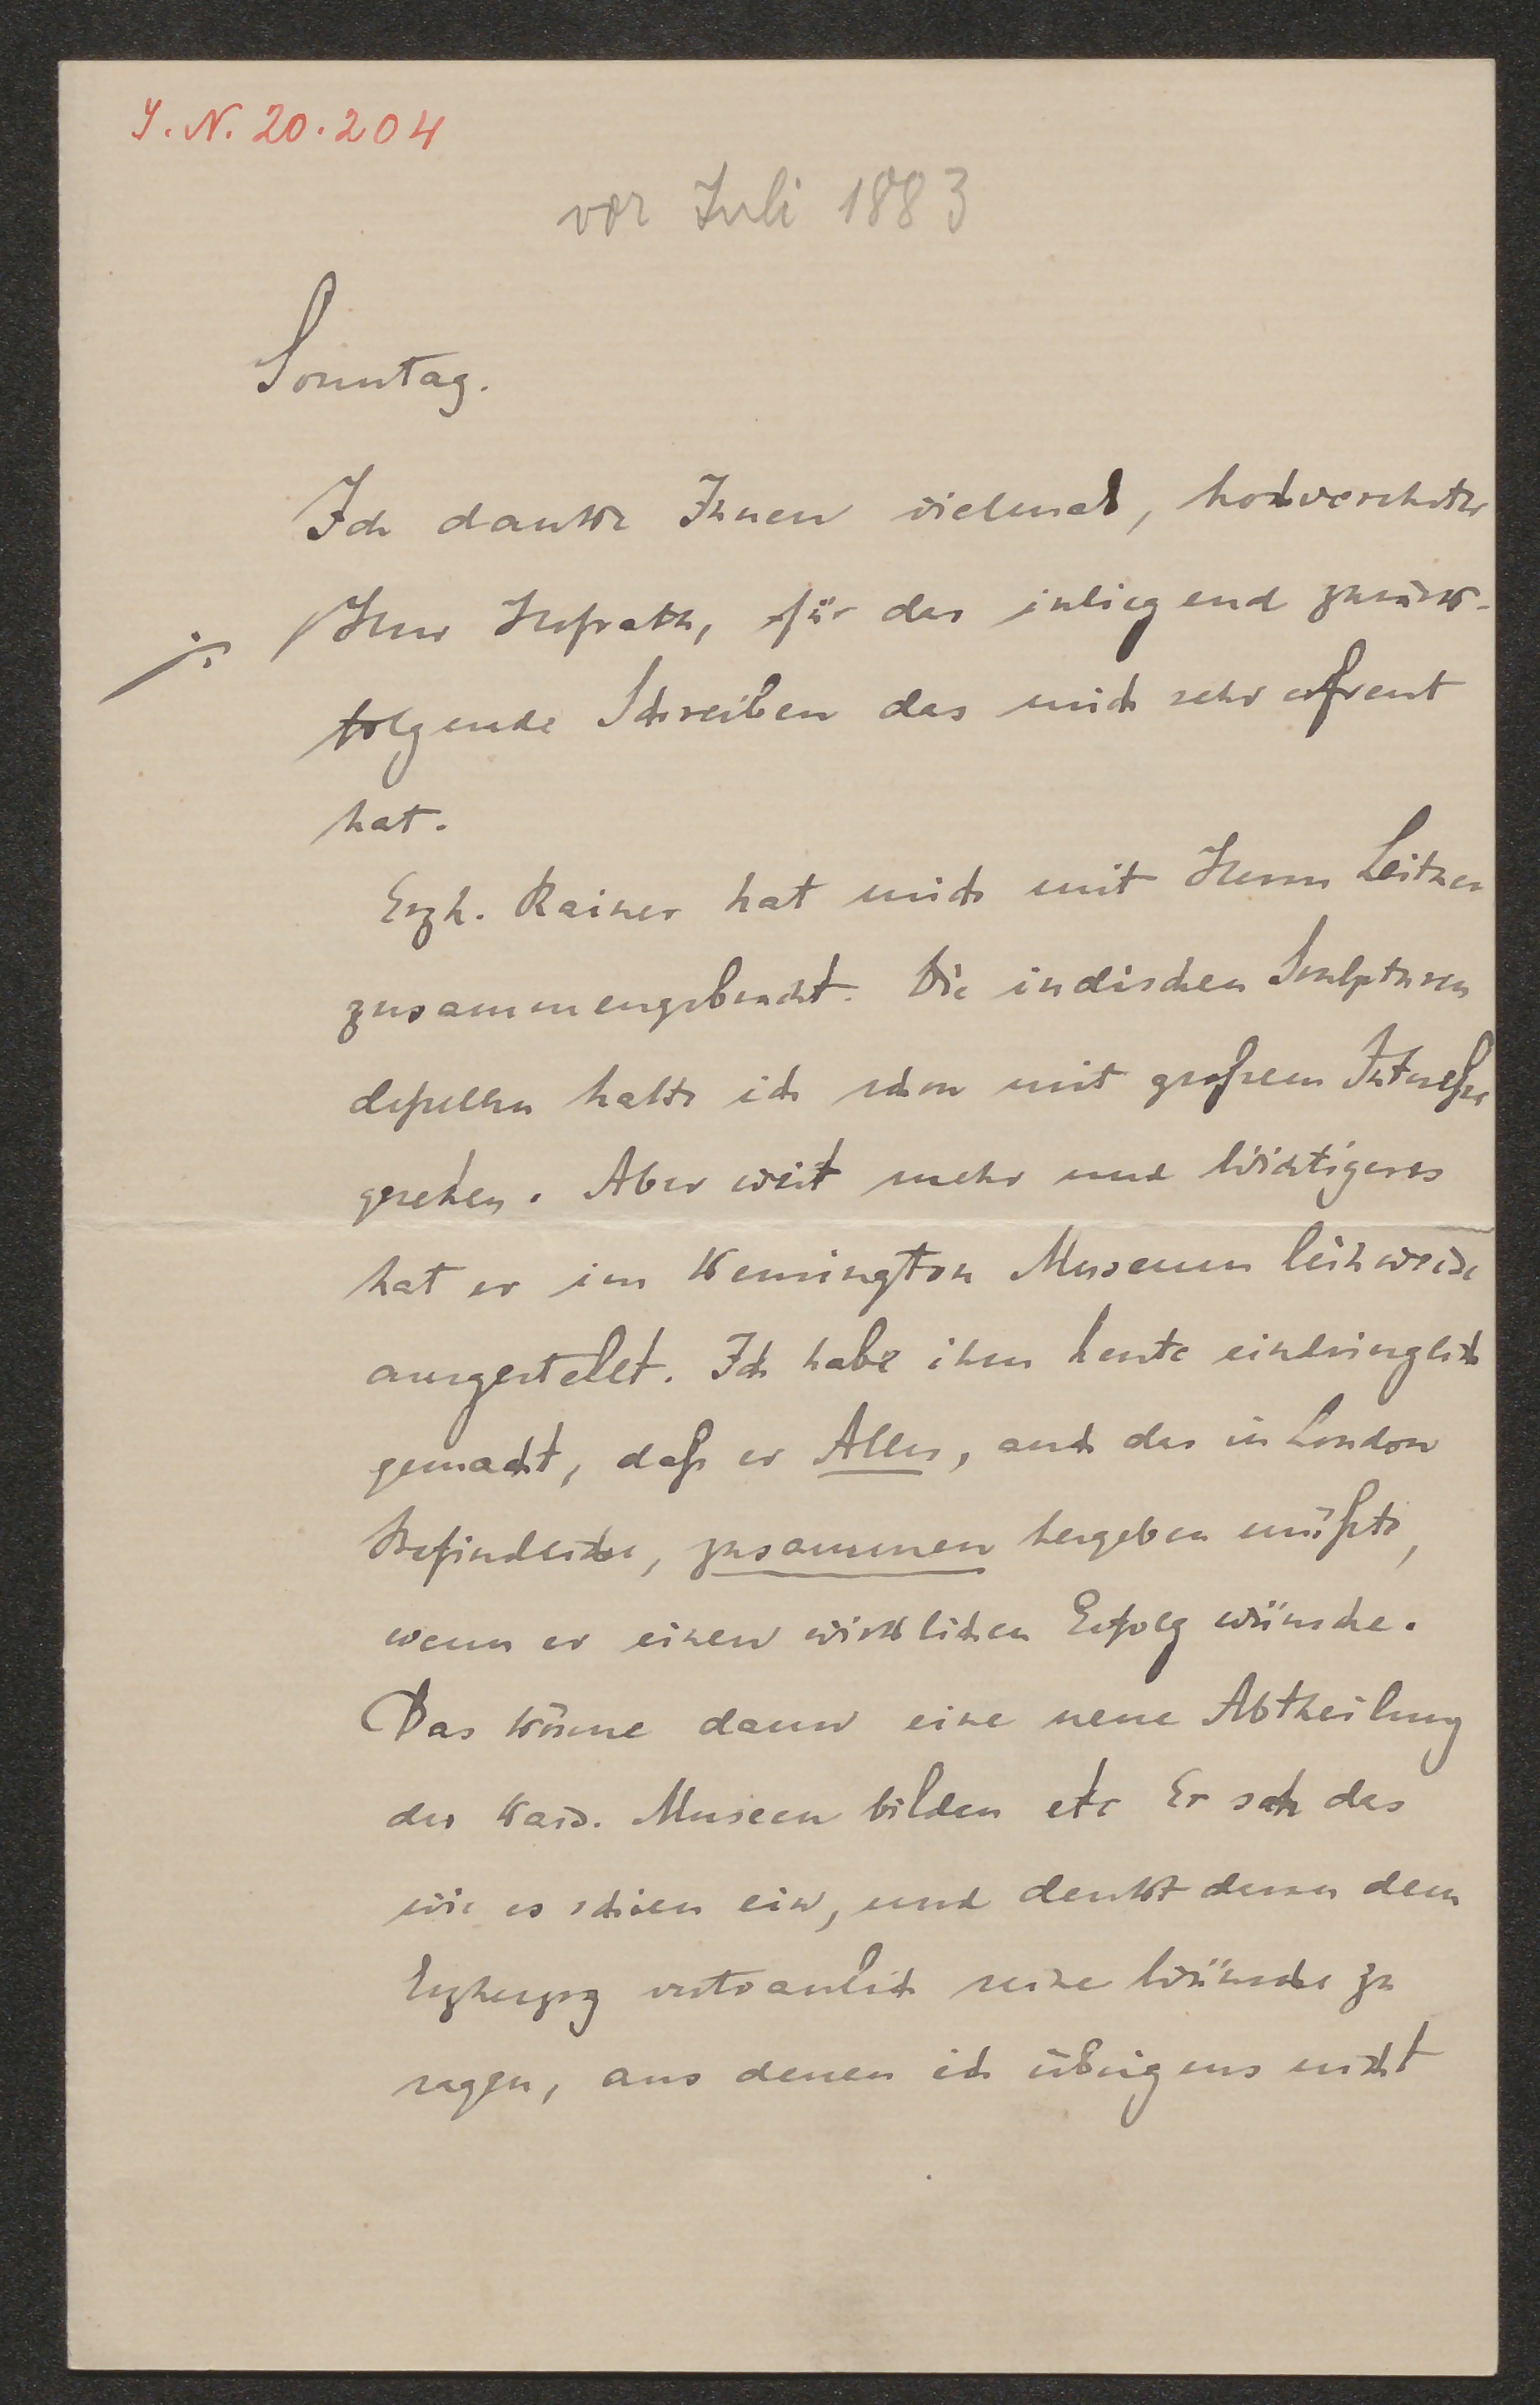 I. N. 20.204
vor Juli 1883
Sonntag.
Ich danke Ihnen vielmals, hochverehrter
Herr Hofrath, für das inliegend zurück-
folgende Schreiben das mich sehr erfreut
hat.
Erzh. Rainer hat mich mit Herrn Leitner
zusammengebracht. Die indischen Sculpturen
desselben hatte ich schon mit großem Interesse
gesehen. Aber weit mehr und Wichtigeres
hat er im Kensington Museum leihweise
ausgestellt. Ich habe ihm heute eindringlich
gemacht, daß er Alles, auch das in London
Befindliche, zusammen hergeben müßte,
wenn er einen wirklichen Erfolg wünsche.
Das könne dann eine neue Abtheilung
der kais. Museen bilden etc Er sah das
wie es schien ein, und denkt daran dem
Erzherzog vertraulich seine Wünsche zu
sagen, aus denen ich übrigens nicht